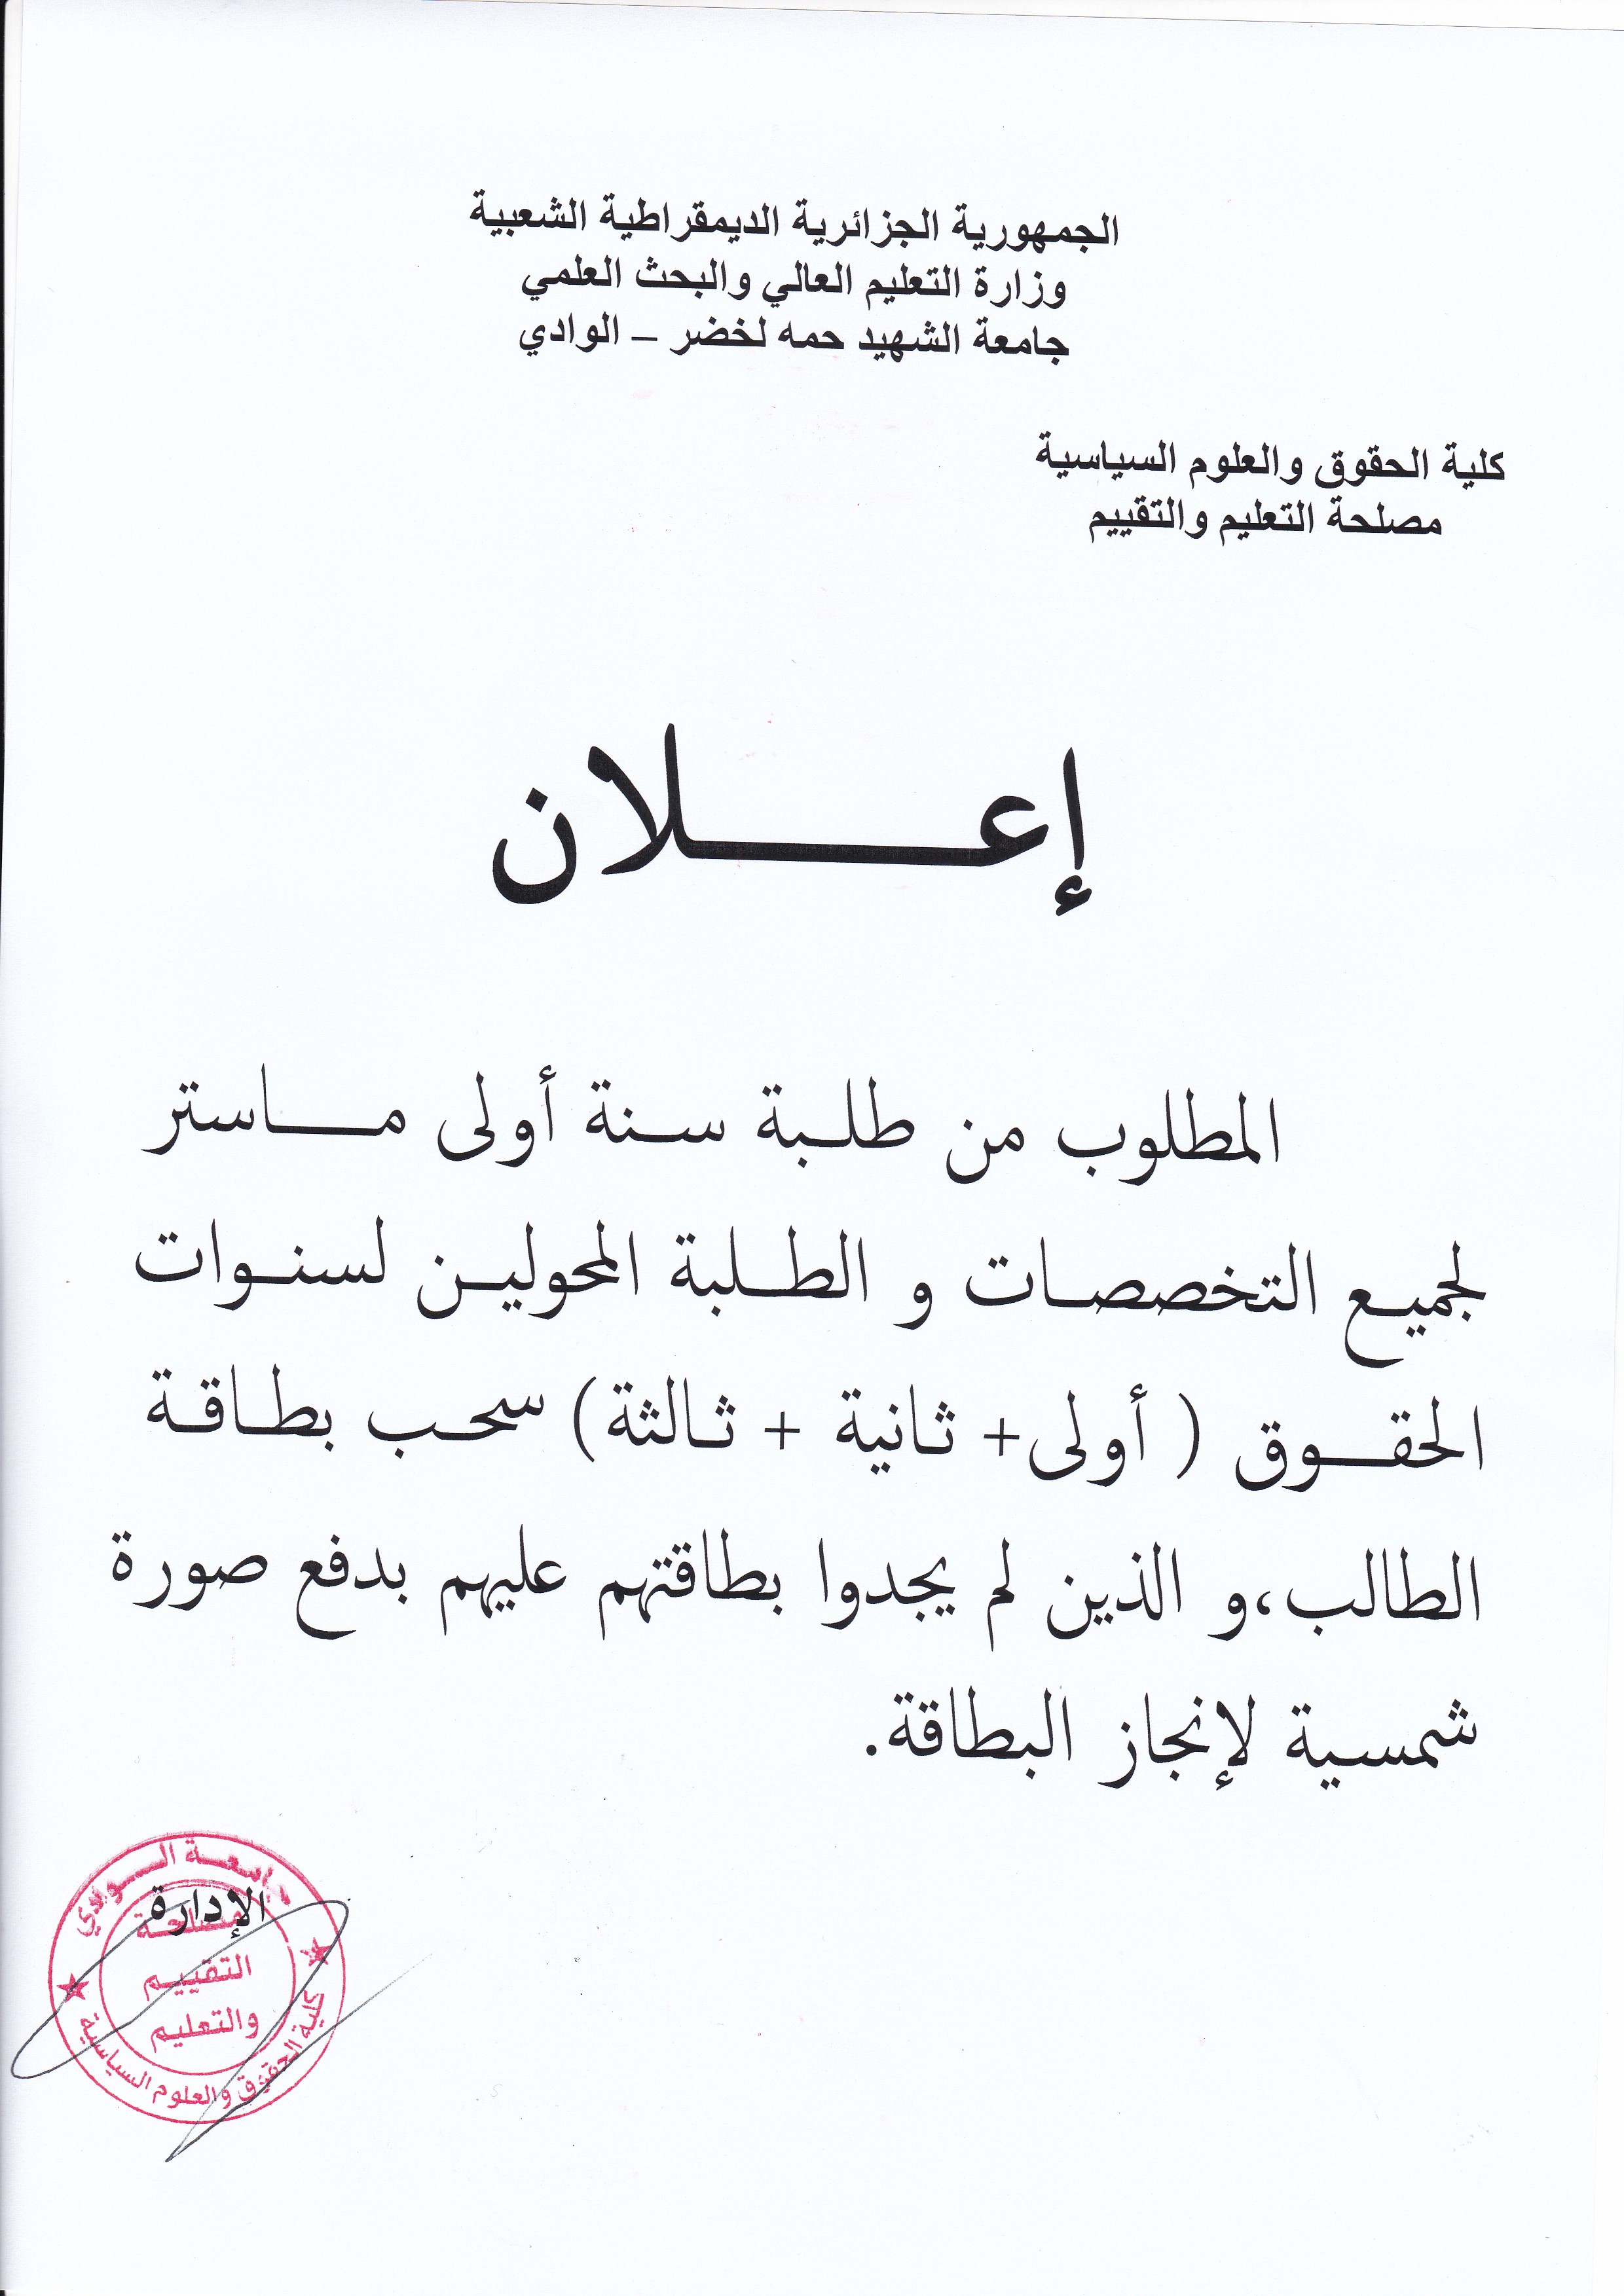 الجمهورية الجزائرية الديمقراطية الشعبية
وزارة التعليم العالي والبحث العلمي
جامعة الشهيد حمه لخضر – الوادي
كلية الحقوق والعلوم السياسية
مصلحة التعليم والتقييم
إعــــــلان
المطلوب من طلـبة سـنة أولى مـــاستر
لجميـع التخصصـات و الطـلبة المحوليـن لسنـوات
الحقــوق ( أولى+ ثـانية + ثـالثة) سحـب بطـاقـة
الطالب،و الذين لم يجدوا بطاقتهم عليهم بدفع صورة
شمسية لإنجاز البطاقة.
الإدارة
جامعـة الـــوادي
مصلحـة
التقييـم
والتعليم
كلية الحقوق والعلوم السياسية